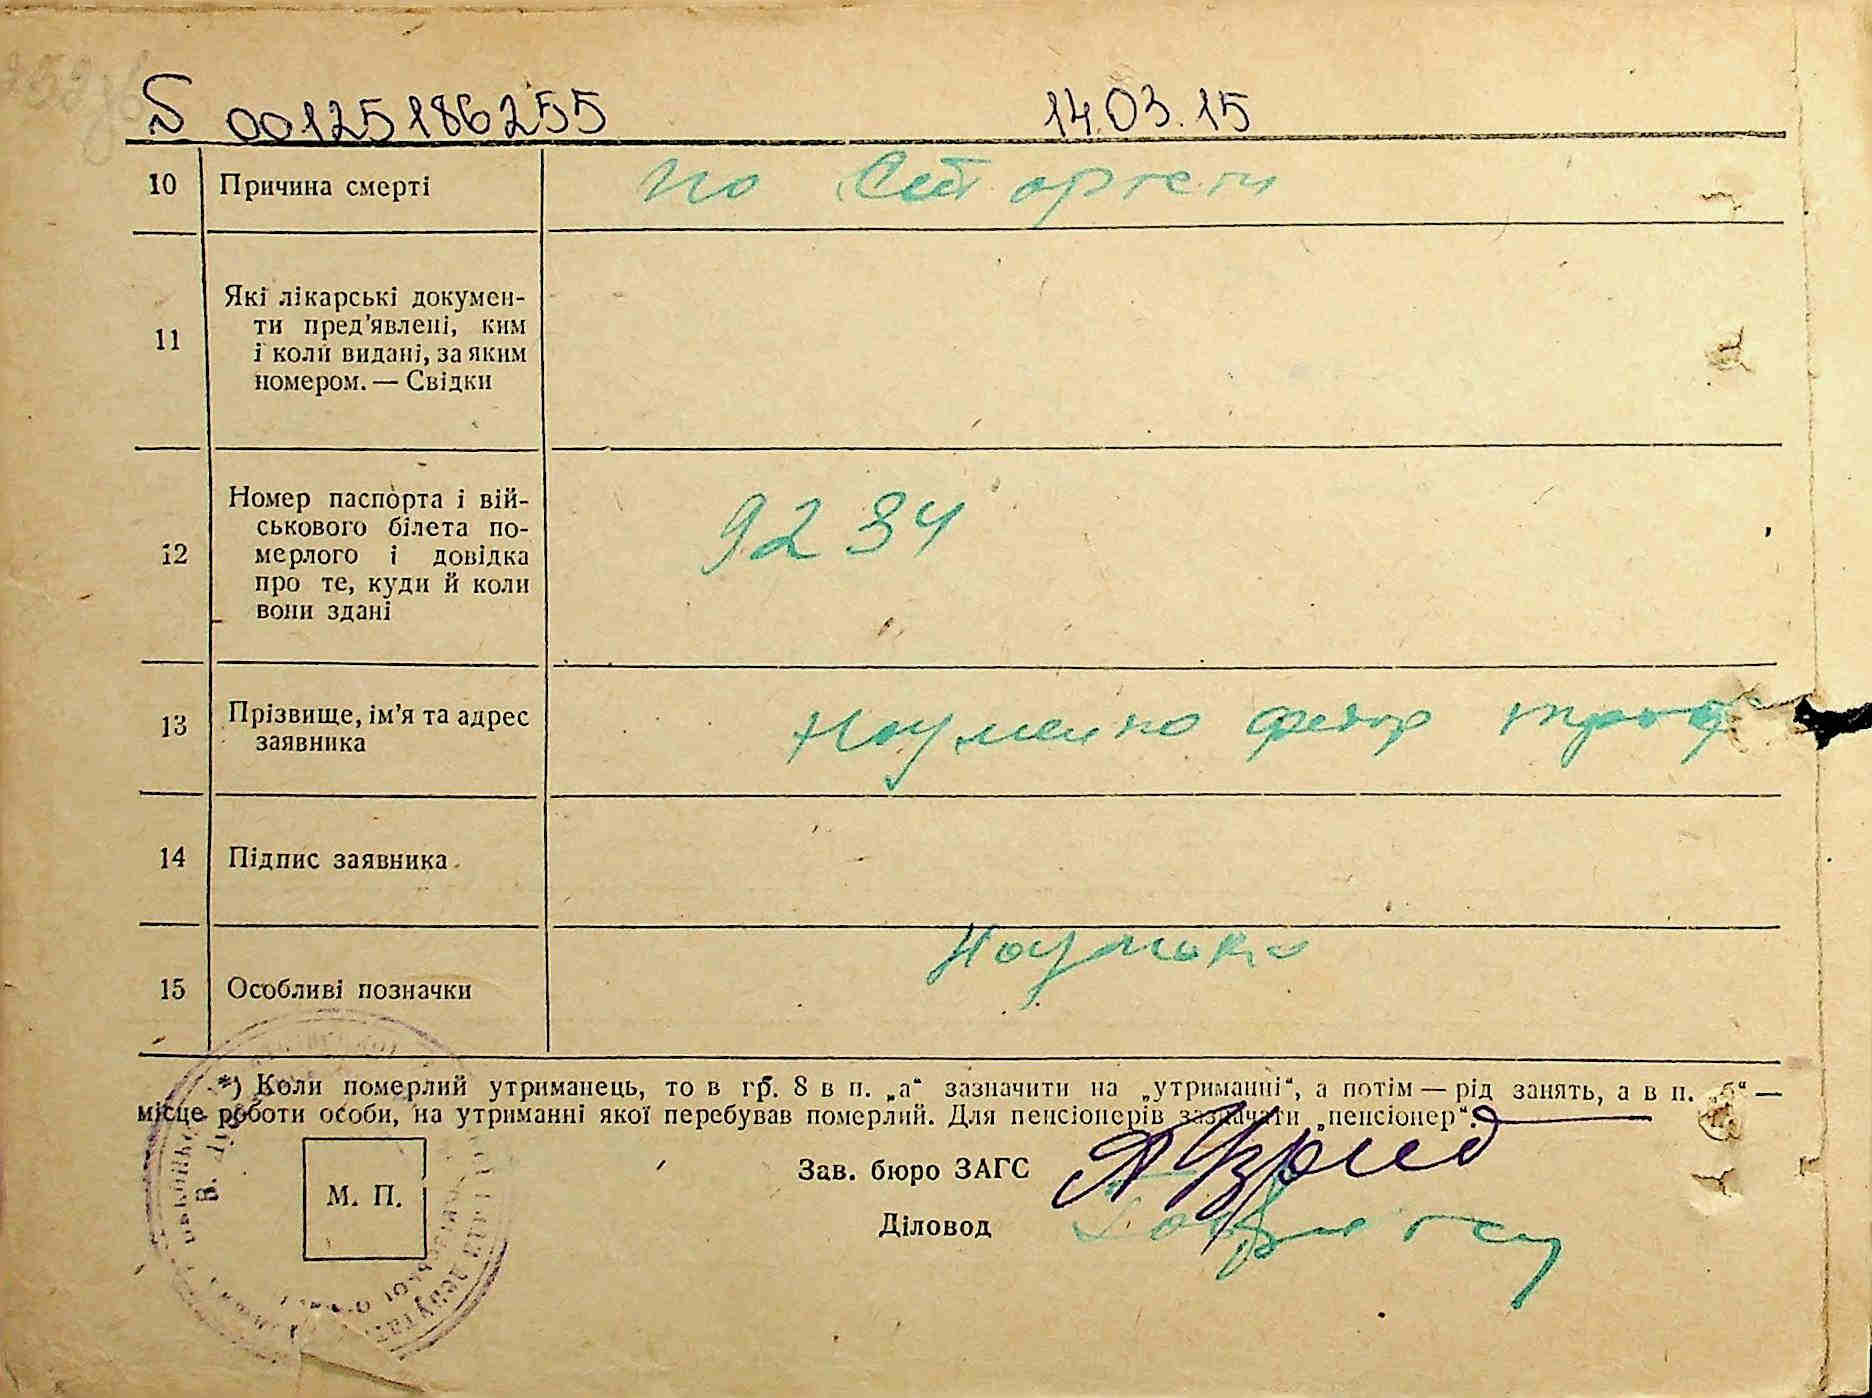 S 00125186255 14.03.15
10 Причина смерті
11 Які лікарські докумен-
ти пред'явлені, ким
і коли видані, за яким
номером. — Свідки
12 Номер паспорта і вій-
ськового білета по-
мерлого і довідка
про те, куди й коли
вони здані
9234
13 Прізвище, ім'я та адрес
заявника
Науменко федор троф
14 Підпис заявника
Науменко
15 Особливі позначки
*) Коли померлий утриманець, то в гр. 8 в п. „а“ зазначити на „утриманні“, а потім — рід занять, а в п. „б“ —
місце роботи особи, на утриманні якої перебував померлий. Для пенсіонерів зазначати „пенсіонер“.
М. П.
Зав. бюро ЗАГС
Діловод